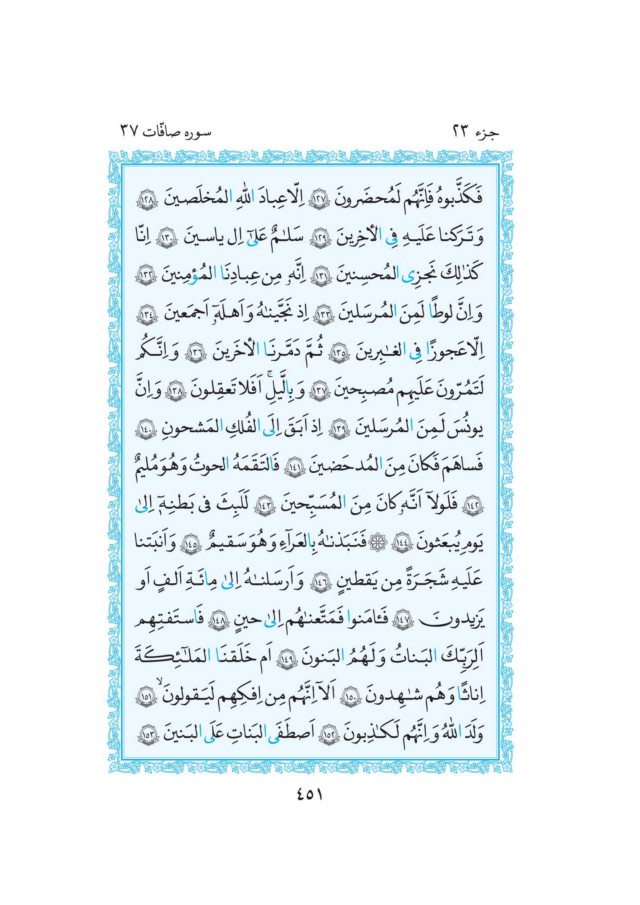 جزء ٢٣
سوره صافّات ٣٧
فَكَذَّبوهُ فَاِنَّهُم لَمُحضَرونَ ﴿١٢٧﴾ اِلّا عِبادَ اللهِ المُخلَصينَ ﴿١٢٨﴾
وَ تَرَكنا عَلَيهِ فِي الآخِرينَ ﴿١٢٩﴾ سَلٰمٌ عَلىٰٓ اِل ياسينَ ﴿١٣٠﴾ اِنّا
كَذٰلِكَ نَجزِي المُحسِنينَ ﴿١٣١﴾ اِنَّهُ مِن عِبادِنَا المُؤمِنينَ ﴿١٣٢﴾
وَ اِنَّ لوطًا لَمِنَ المُرسَلينَ ﴿١٣٣﴾ اِذ نَجَّينٰهُ وَ اَهلَهٓ اَجمَعينَ ﴿١٣٤﴾
اِلّا عَجوزًا فِي الغٰبِرينَ ﴿١٣٥﴾ ثُمَّ دَمَّرنَا الآخَرينَ ﴿١٣٦﴾ وَ اِنَّكُم
لَتَمُرّونَ عَلَيهِم مُصبِحينَ ﴿١٣٧﴾ وَ بِالَّيلِ ۚ اَفَلا تَعقِلونَ ﴿١٣٨﴾ وَ اِنَّ
يونُسَ لَمِنَ المُرسَلينَ ﴿١٣٩﴾ اِذ اَبَقَ اِلَى الفُلكِ المَشحونِ ﴿١٤٠﴾
فَساهَمَ فَكانَ مِنَ المُدحَضينَ ﴿١٤١﴾ فَالتَقَمَهُ الحوتُ وَ هُوَ مُليمٌ
﴿١٤٢﴾ فَلَولآ اَنَّهُ كانَ مِنَ المُسَبِّحينَ ﴿١٤٣﴾ لَلَبِثَ في بَطنِهٓ اِلىٰ
يَومِ يُبعَثونَ ﴿١٤٤﴾ ۞ فَنَبَذنٰهُ بِالعَرآءِ وَ هُوَ سَقيمٌ ﴿١٤٥﴾ وَ اَنبَتنا
عَلَيهِ شَجَرَةً مِن يَقطينٍ ﴿١٤٦﴾ وَ اَرسَلنٰهُ اِلىٰ مِائَةِ اَلفٍ اَو
يَزيدونَ ﴿١٤٧﴾ فَـٔامَنوا فَمَتَّعنٰهُم اِلىٰ حينٍ ﴿١٤٨﴾ فَاستَفتِهِم
اَلِرَبِّكَ البَناتُ وَ لَهُمُ البَنونَ ﴿١٤٩﴾ اَم خَلَقنَا المَلٰٓئِكَةَ
اِناثًا وَ هُم شٰهِدونَ ﴿١٥٠﴾ اَلآ اِنَّهُم مِن اِفكِهِم لَيَقولونَ ۙ ﴿١٥١﴾
وَلَدَ اللهُ وَ اِنَّهُم لَكٰذِبونَ ﴿١٥٢﴾ اَصطَفَى البَناتِ عَلَى البَنينَ ﴿١٥٣﴾
٤٥١